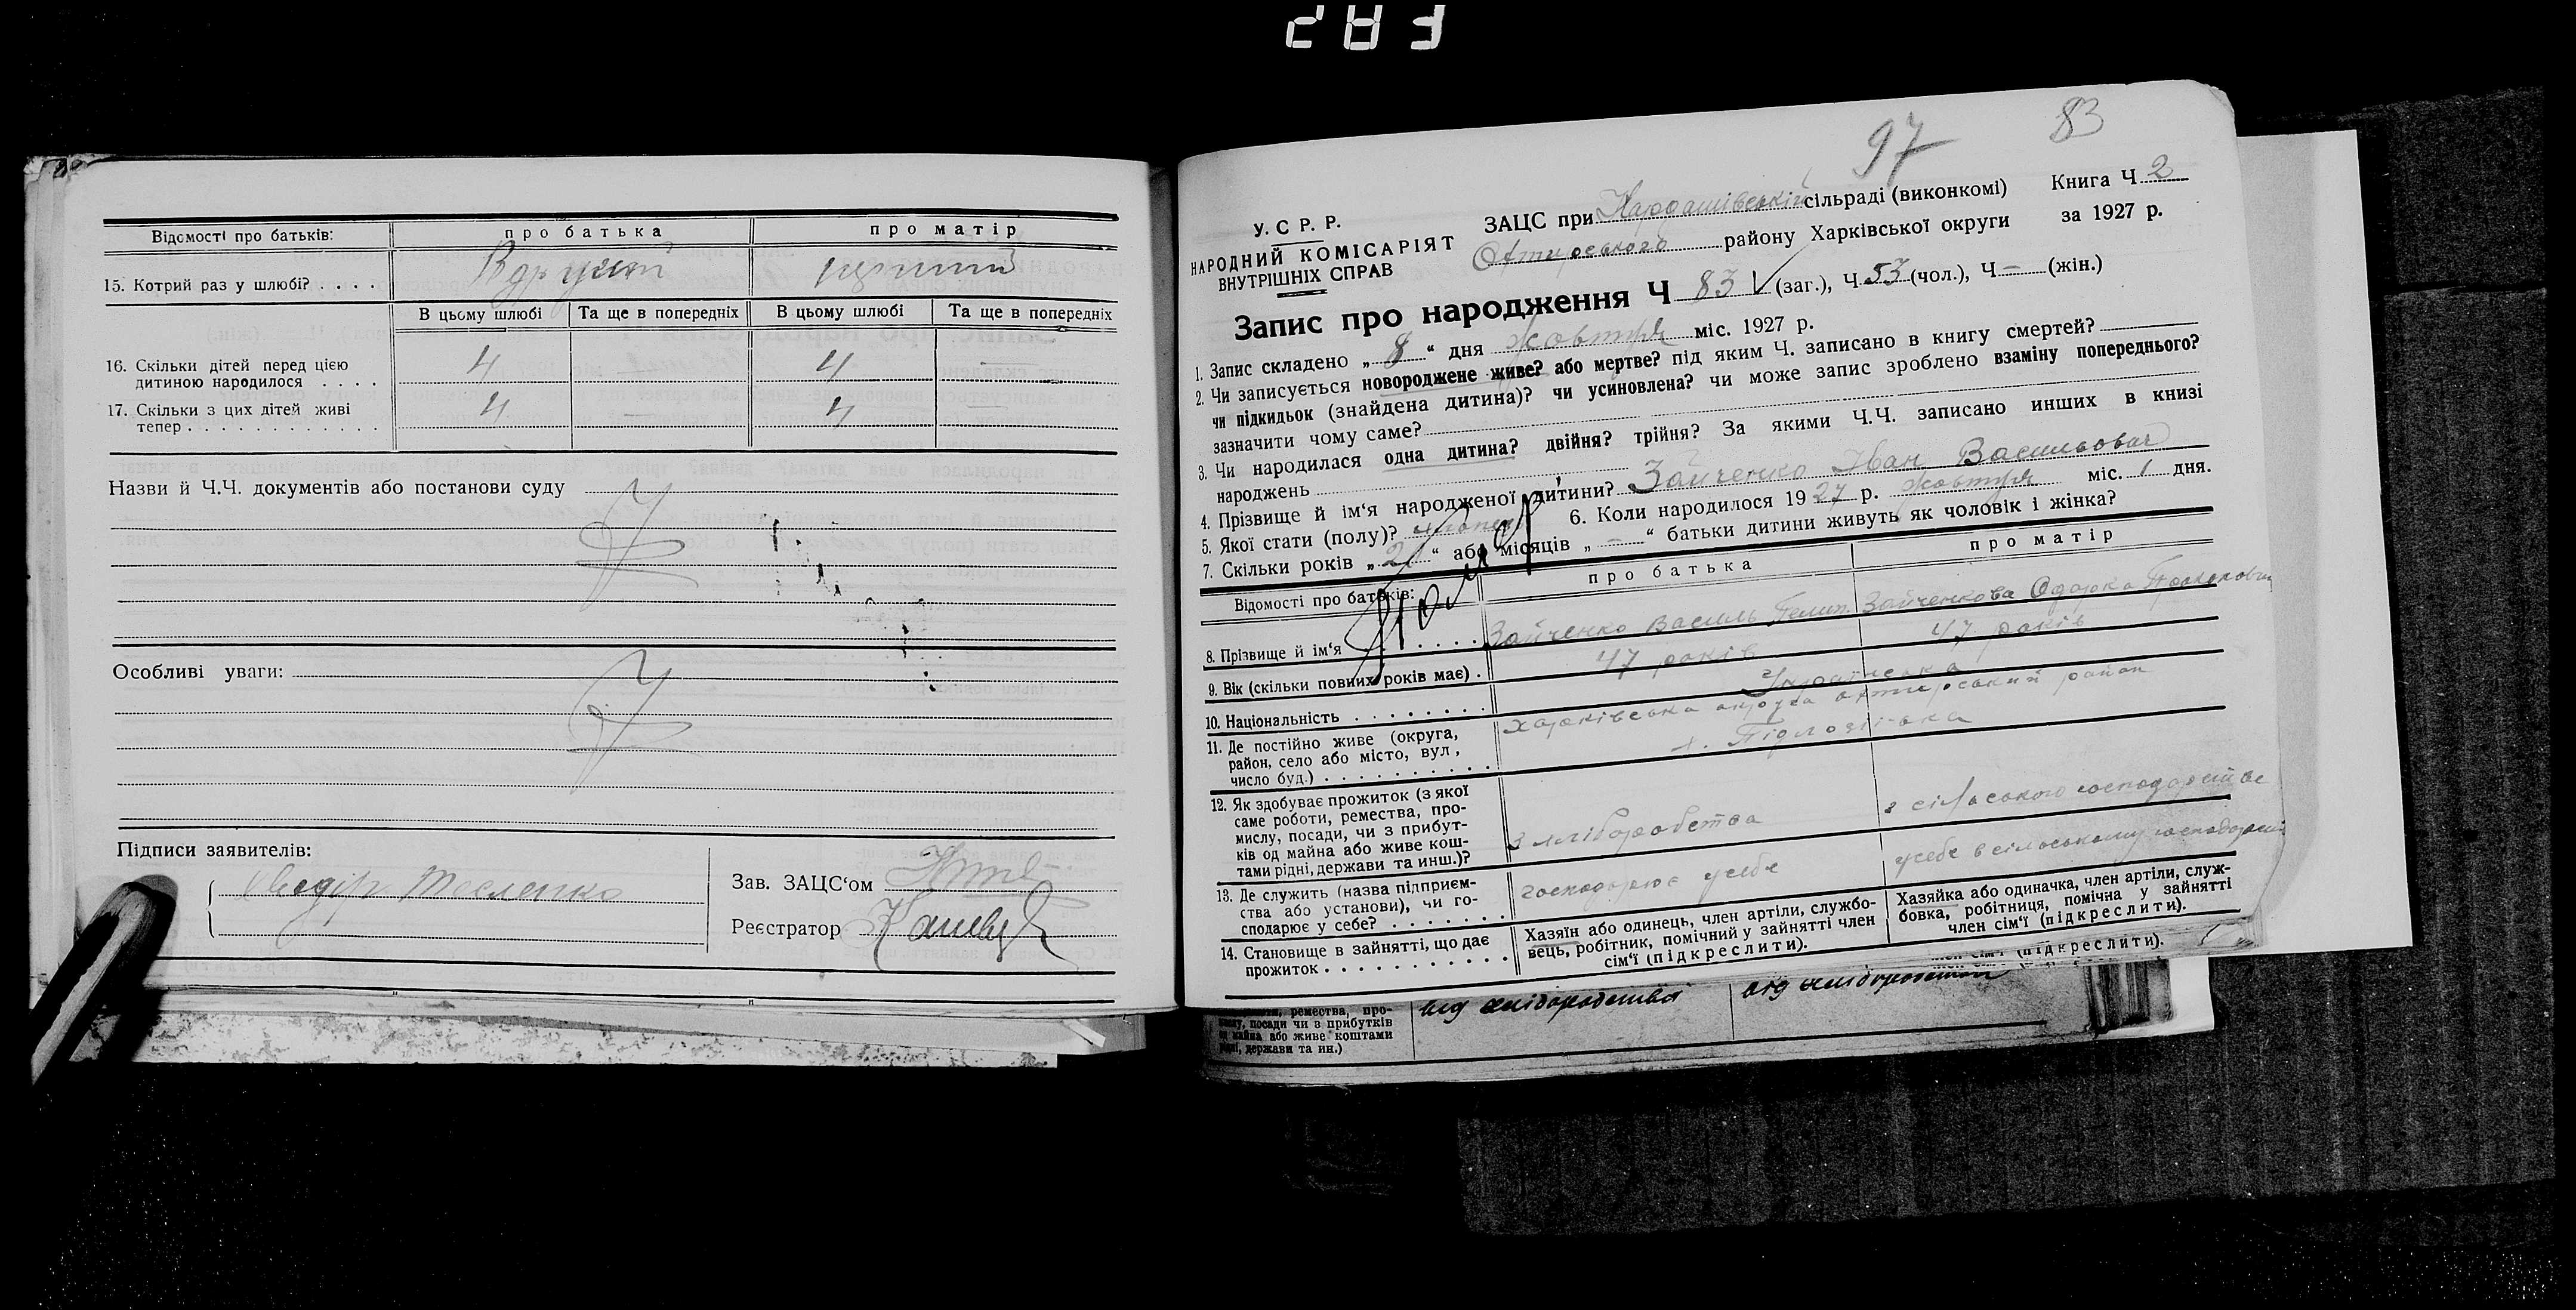 283
Відомості про батьків: про батька про матір
15. Котрий раз у шлюбі? . . . . Вдругий перший
В цьому шлюбі Та ще в попередніх В цьому шлюбі Та ще в попередніх
16. Скільки дітей перед цією
дитиною народилося . . . . 4 — 4 —
17. Скільки з цих дітей живі
тепер . . . . . . . . . . . . 4 — 4 —
Назви й Ч.Ч. документів або постанови суду
Особливі уваги:
Підписи заявителів:
Тесленко
Зав. ЗАЦС‘ом
Реєстратор
97 83
У. С. Р. Р.
НАРОДНИЙ КОМІСАРІЯТ
ВНУТРІШНІХ СПРАВ
ЗАЦС при Кардашівській сільраді (виконкомі) Книга Ч 2
Охтирського району Харківської округи за 1927 р.
Запис про народження Ч 83 (заг.), Ч 53 (чол.), Ч — (жін.)
1. Запис складено „ 8 “ дня жовтня міс. 1927 р.
2. Чи записується новороджене живе? або мертве? під яким Ч. записано в книгу смертей?
чи підкидьок (знайдена дитина)? чи усиновлена? чи може запис зроблено взаміну попереднього?
зазначити чому саме?
3. Чи народилася одна дитина? двійня? трійня? За якими Ч.Ч. записано инших в книзі
народжень
4. Прізвище й ім‘я народженої дитини? Зайченко Іван Васильович
5. Якої стати (полу)? хлопець 6. Коли народилося 1927 р. жовтня міс. 1 дня.
7. Скільки років „ 21 “ або місяців „ — “ батьки дитини живуть як чоловік і жінка?
Відомості про батьків: про батька про матір
8. Прізвище й ім‘я . . . . . Зайченко Василь Пелип. Зайченкова Одарка
9. Вік (скільки повних років має) . 47 років 47 років
10. Національність . . . . . . . . Українська
11. Де постійно живе (округа,
район, село або місто, вул,
число буд.) . . . . . . . . . . Харківська округа охтирський район
х. Підлозіївка
12. Як здобуває прожиток (з якої
саме роботи, ремества, про-
мислу, посади, чи з прибут-
ків од майна або живе кош-
тами рідні, держави та инш.)? з хліборобства з сільського господарства
13. Де служить (назва підприєм-
ства або установи), чи го-
сподарює у себе? . . . . . . господарює усебе усебе в сільському
14. Становище в зайнятті, що дає
прожиток . . . . . . . . . . .
Хазяїн або одинець, член артіли, службо-
вець, робітник, помічний у зайнятті член
сім‘ї (підкреслити).
Хазяйка або одиначка, член артіли, служ-
бовка, робітниця, помічна у зайнятті
член сім‘ї (підкреслити).
член сім‘ї (підкреслити).
ремества, про-
посади чи з прибутків
майна або живе коштами
держави та ин.) від хліборобства від хліборобства